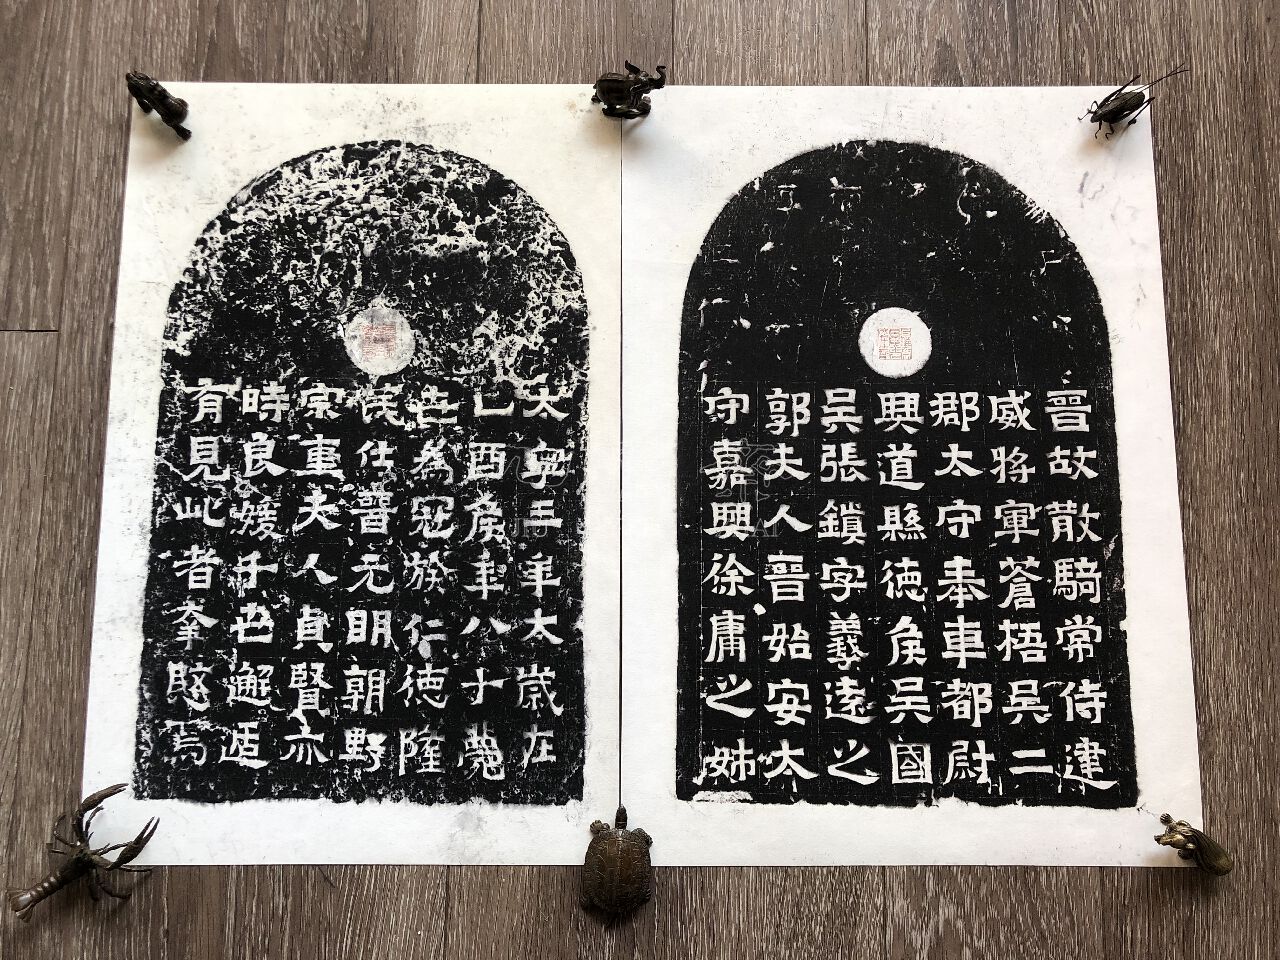 晉故散騎常侍建
威將軍蒼梧吳二
郡太守奉車都尉
興道縣德侯吳國
吳張鎮字義遠之
郭夫人晉始安太
守嘉興徐庸之姊
太寧三年太歲在
乙酉侯年八十薨
世為冠族仁德隆
茂仕晉元明朝野
宗重夫人貞賢亦
時良媛千世邂逅
有見此者幸愍焉